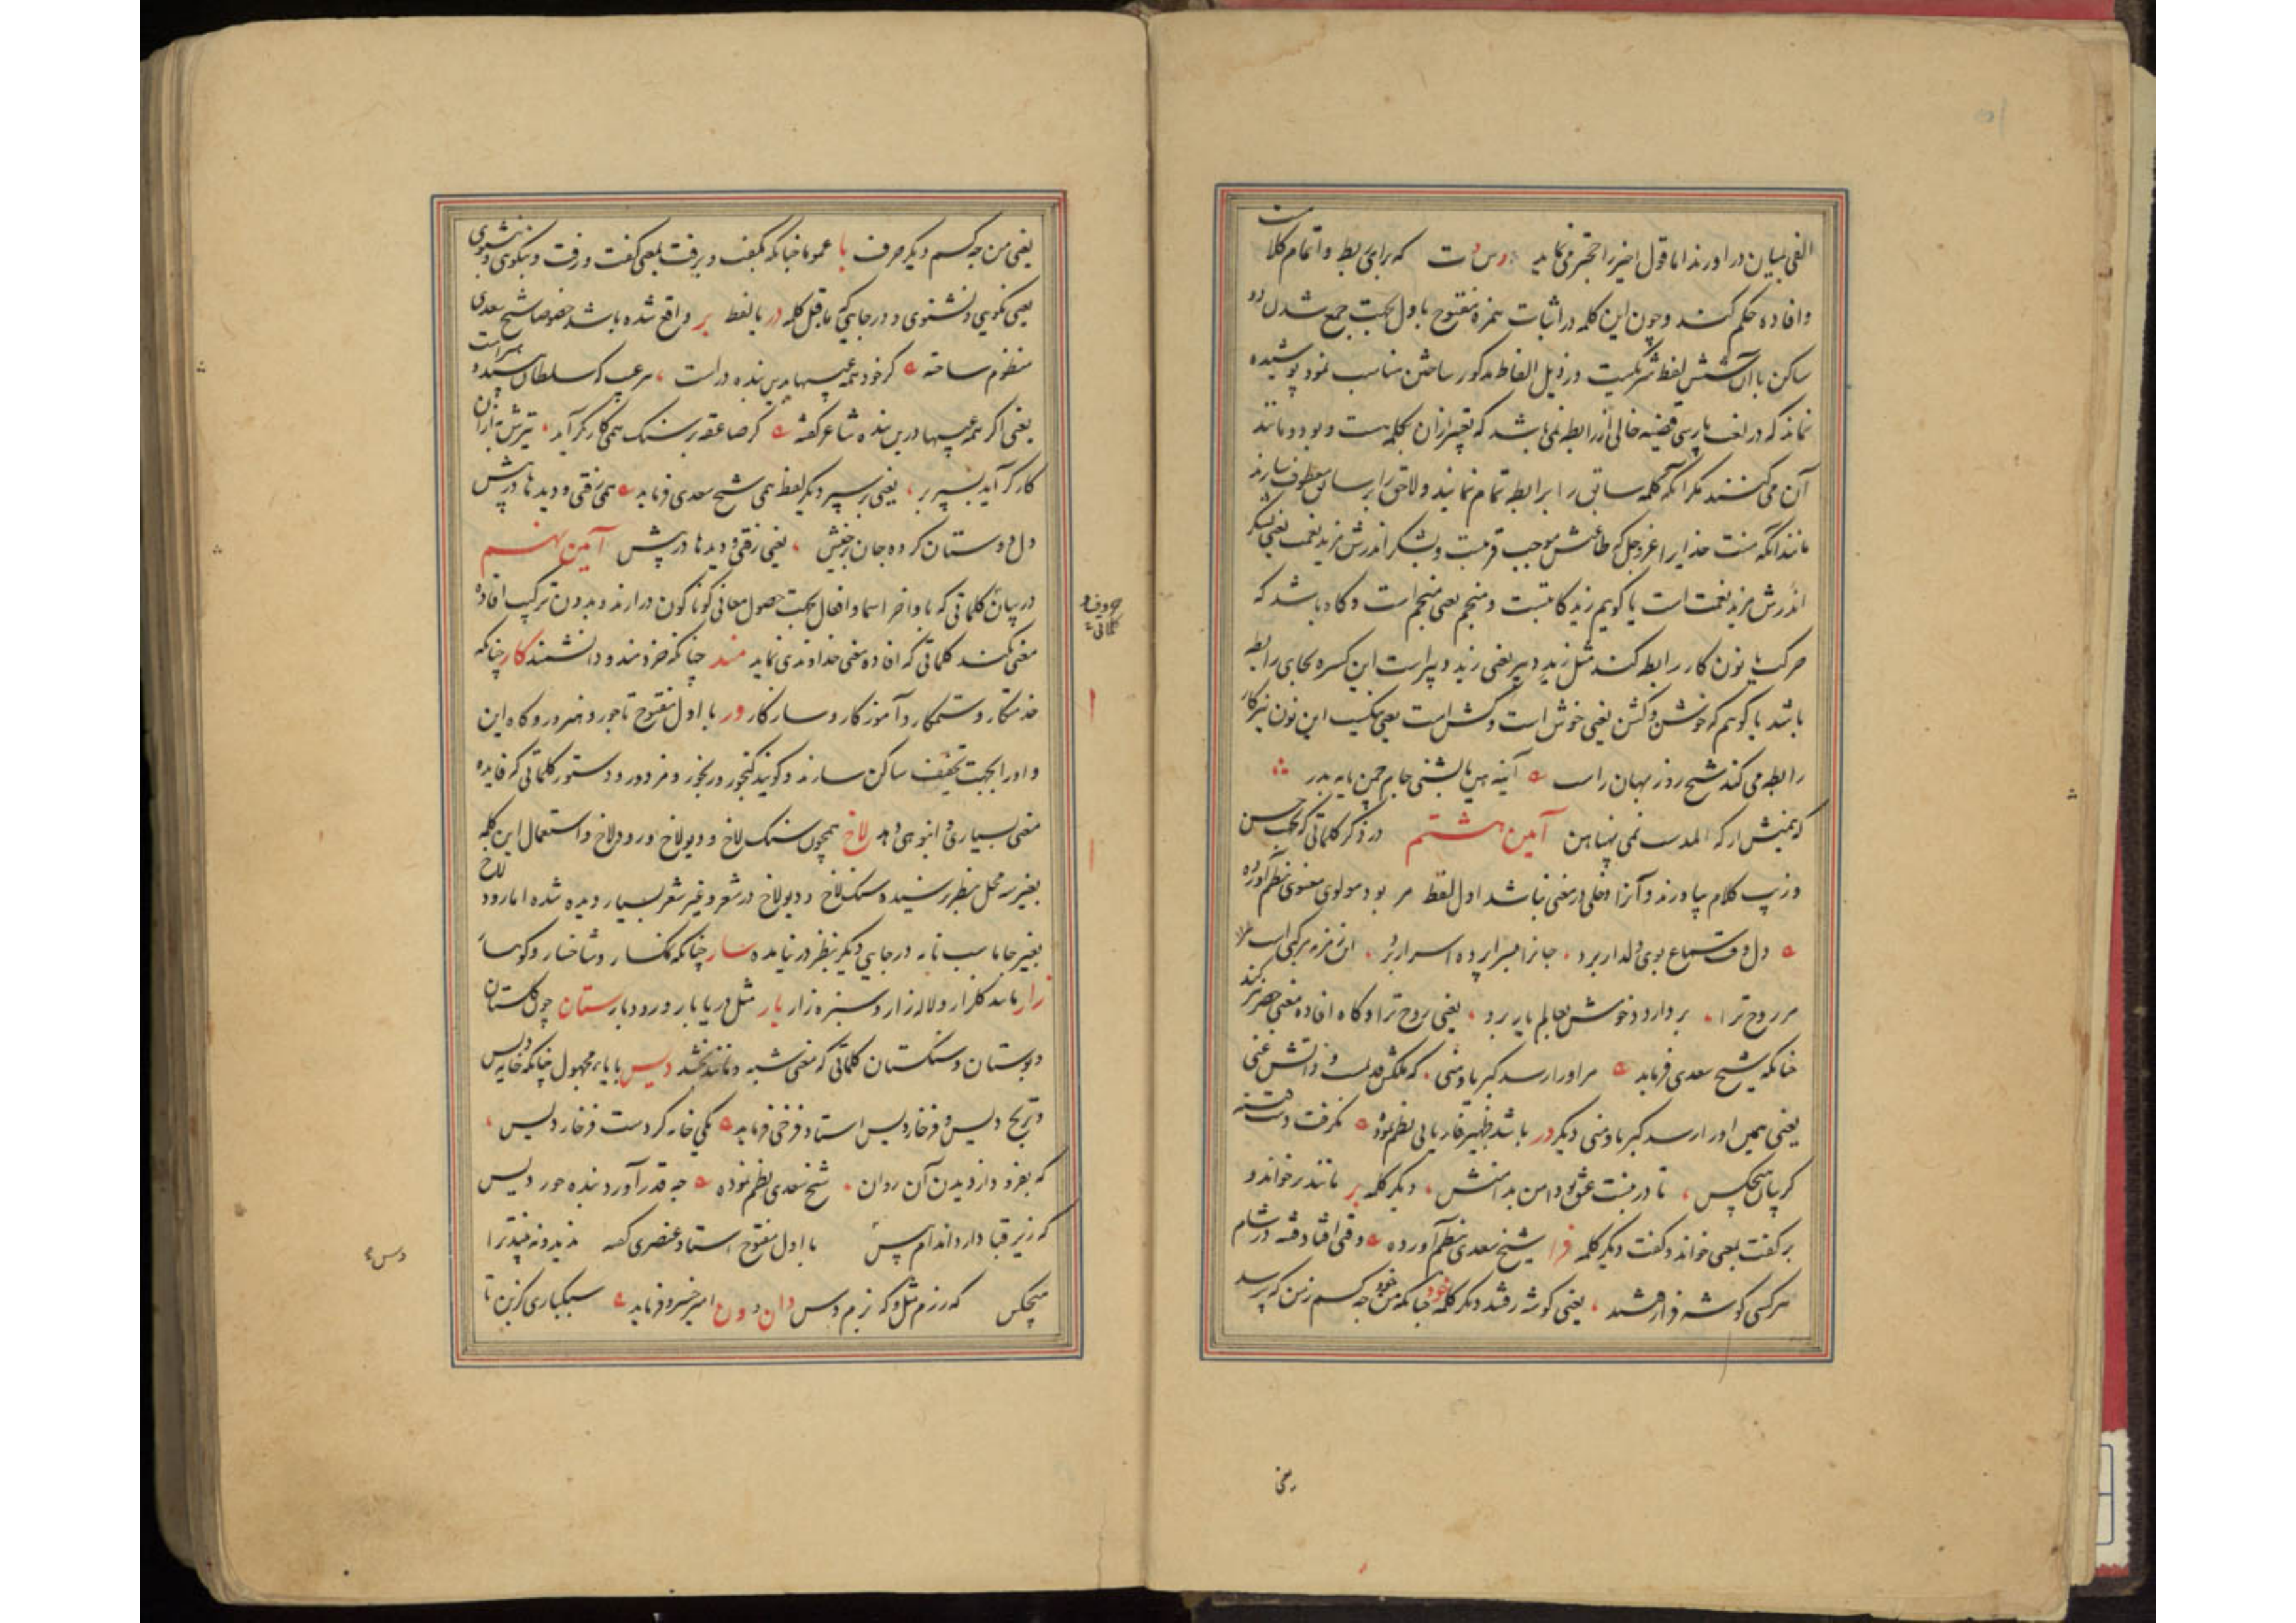 الفی بمیان در آورند اما قول اخیر را حقیر می نماید که برای ربط و اتمام کلام
و افاده حکم کنند و چون این کلمه در اثبات همزه مفتوح با اول بجهت جمع شدن دو
ساکن با آن شش لفظ شریکست در ذیل الفاظ مذکور ساختن مناسب نمود پوشیده
نماند که در لغت پارسی قضیه خالی از رابطه نمی باشد که تعبیر از آن بکلمه است و بود و مانند
آن می کنند مگر آنکه کلمه سابق را برابطه تمام نمایند و لاحق را بر سابق معطوف سازند
مانند آنکه منت خدایرا عز و جل که طاعتش موجب قربتست و بشکر اندرش مزید نعمت یعنی بشکر
اندرش مزید نعمت است یا گویم زید کاتبست و منجم یعنی منجم است و گاه باشد که
حرکت یا نون کار رابطه کند مثل زید دبیر یعنی زید دبیر است این کسره بجای رابطه
باشد یا گویم که خوشن و کشن یعنی خوش است و کش است یعنی نیکست این نون نیز کار
رابطه می کند شیخ روزبهان راست
آیین هشتم در ذکر کلماتی که بجهت حسن
و زیب کلام بیاورند و آنرا دخلی در معنی نباشد اول لفظ مر بود مولوی معنوی بنظم آورده
دل وقت سماع بوی دلدار برد جانرا بسراپرده اسرار برد این زمزمه مرکبی است
مر روح ترا بردارد و خوش بعالم یار برد یعنی روح ترا و گاه افاده معنی حصر کند
چنانکه شیخ سعدی فرماید مر او را رسد کبریا و منی که ملکش قدیمست و ذاتش غنی
یعنی همین او را رسد کبریا و منی دیگر در باشد ظهیر فاریابی نظم نموده نگرفت دست فتنه
گریبان هیچکس تا در نبست عشق تو دامن بدامنش دیگر کلمه بر مانند برخواند و
برگفت بمعنی خواند و گفت دیگر کلمه فرا شیخ سعدی بنظم آورده وقتی افتاد فتنه در شام
هر کسی گوشه فرا رفتند یعنی گوشه رفتند دیگر کلمه خود چنانکه من خود چه کسم
یعنی
یعنی من چه کسم دیگر حرف با عموما چنانکه بگفت و برفت بمعنی گفت و رفت و بگوی و بشنوی
یعنی گویی و شنوی و در جایی که ماقبل کلمه در یا لفظ بر واقع شده باشد خصوصا شیخ سعدی
منظوم ساخته گر خود همه عیبها بدین بنده در است هر عیب که سلطان بپسندد هنر است
یعنی اگر همه عیبها درین بنده شاعر گفته گر صاعقه بر سنگ همی کارگر آید تیرش به از آن
کارگر آید بسپر بر یعنی بر سپر دیگر لفظ همی شیخ سعدی فرماید همی رفتی و دیدها در پیش
دل دوستان کرده جان برخیش یعنی رفتی و دیدها در پیش آیین نهم
در بیان کلماتی که باواخر اسما و افعال بجهت حصول معانی گوناگون در آرند و بدون ترکیب افاده
معنی نکند کلماتی که افاده معنی خداوندی نماید مند چنانکه خردمند و دانشمند کار چنانکه
خدمتکار و ستمکار و آموزکار و سازکار ور با اول مفتوح تاجور و هنرور و گاه این
واو را بجهت تخفیف ساکن سازند و گویند گنجور و رنجور و مزدور و دستور کلماتی که فایده
معنی بسیاری و انبوهی دهد لاخ همچون سنگ لاخ و دیولاخ و رودلاخ و استعمال این کلمه
بغیر سه محل بنظر نرسیده سنگ لاخ و دیولاخ در شعر و غیر شعر بسیار دیده شده اما رودلاخ
در جایی دیگر بنظر در نیامده سار چنانکه نمکسار و شاخسار و کوهسار
زار مانند گلزار و لاله زار و سبزه زار بار مثل دریابار و رودبار ستان چون گلستان
و بوستان و سنگستان کلماتی که معنی شبه و مانند بخشد دیس با یاء مجهول چنانکه خایه دیس
و ترنج دیس و فرخاردیس استاد فرخی فرماید یکی خانه کردست فرخاردیس
که بفروزد از دیدن آن روان شیخ سعدی نظم نموده چه قدر آورد بنده حوردیس
که زیر قبا دارد اندام پیس با اول مفتوح استاد عنصری گفته
هیچکس که رزم مثل و که بزم دس دان و ون امیر خسرو فرماید
حروف و کلمات